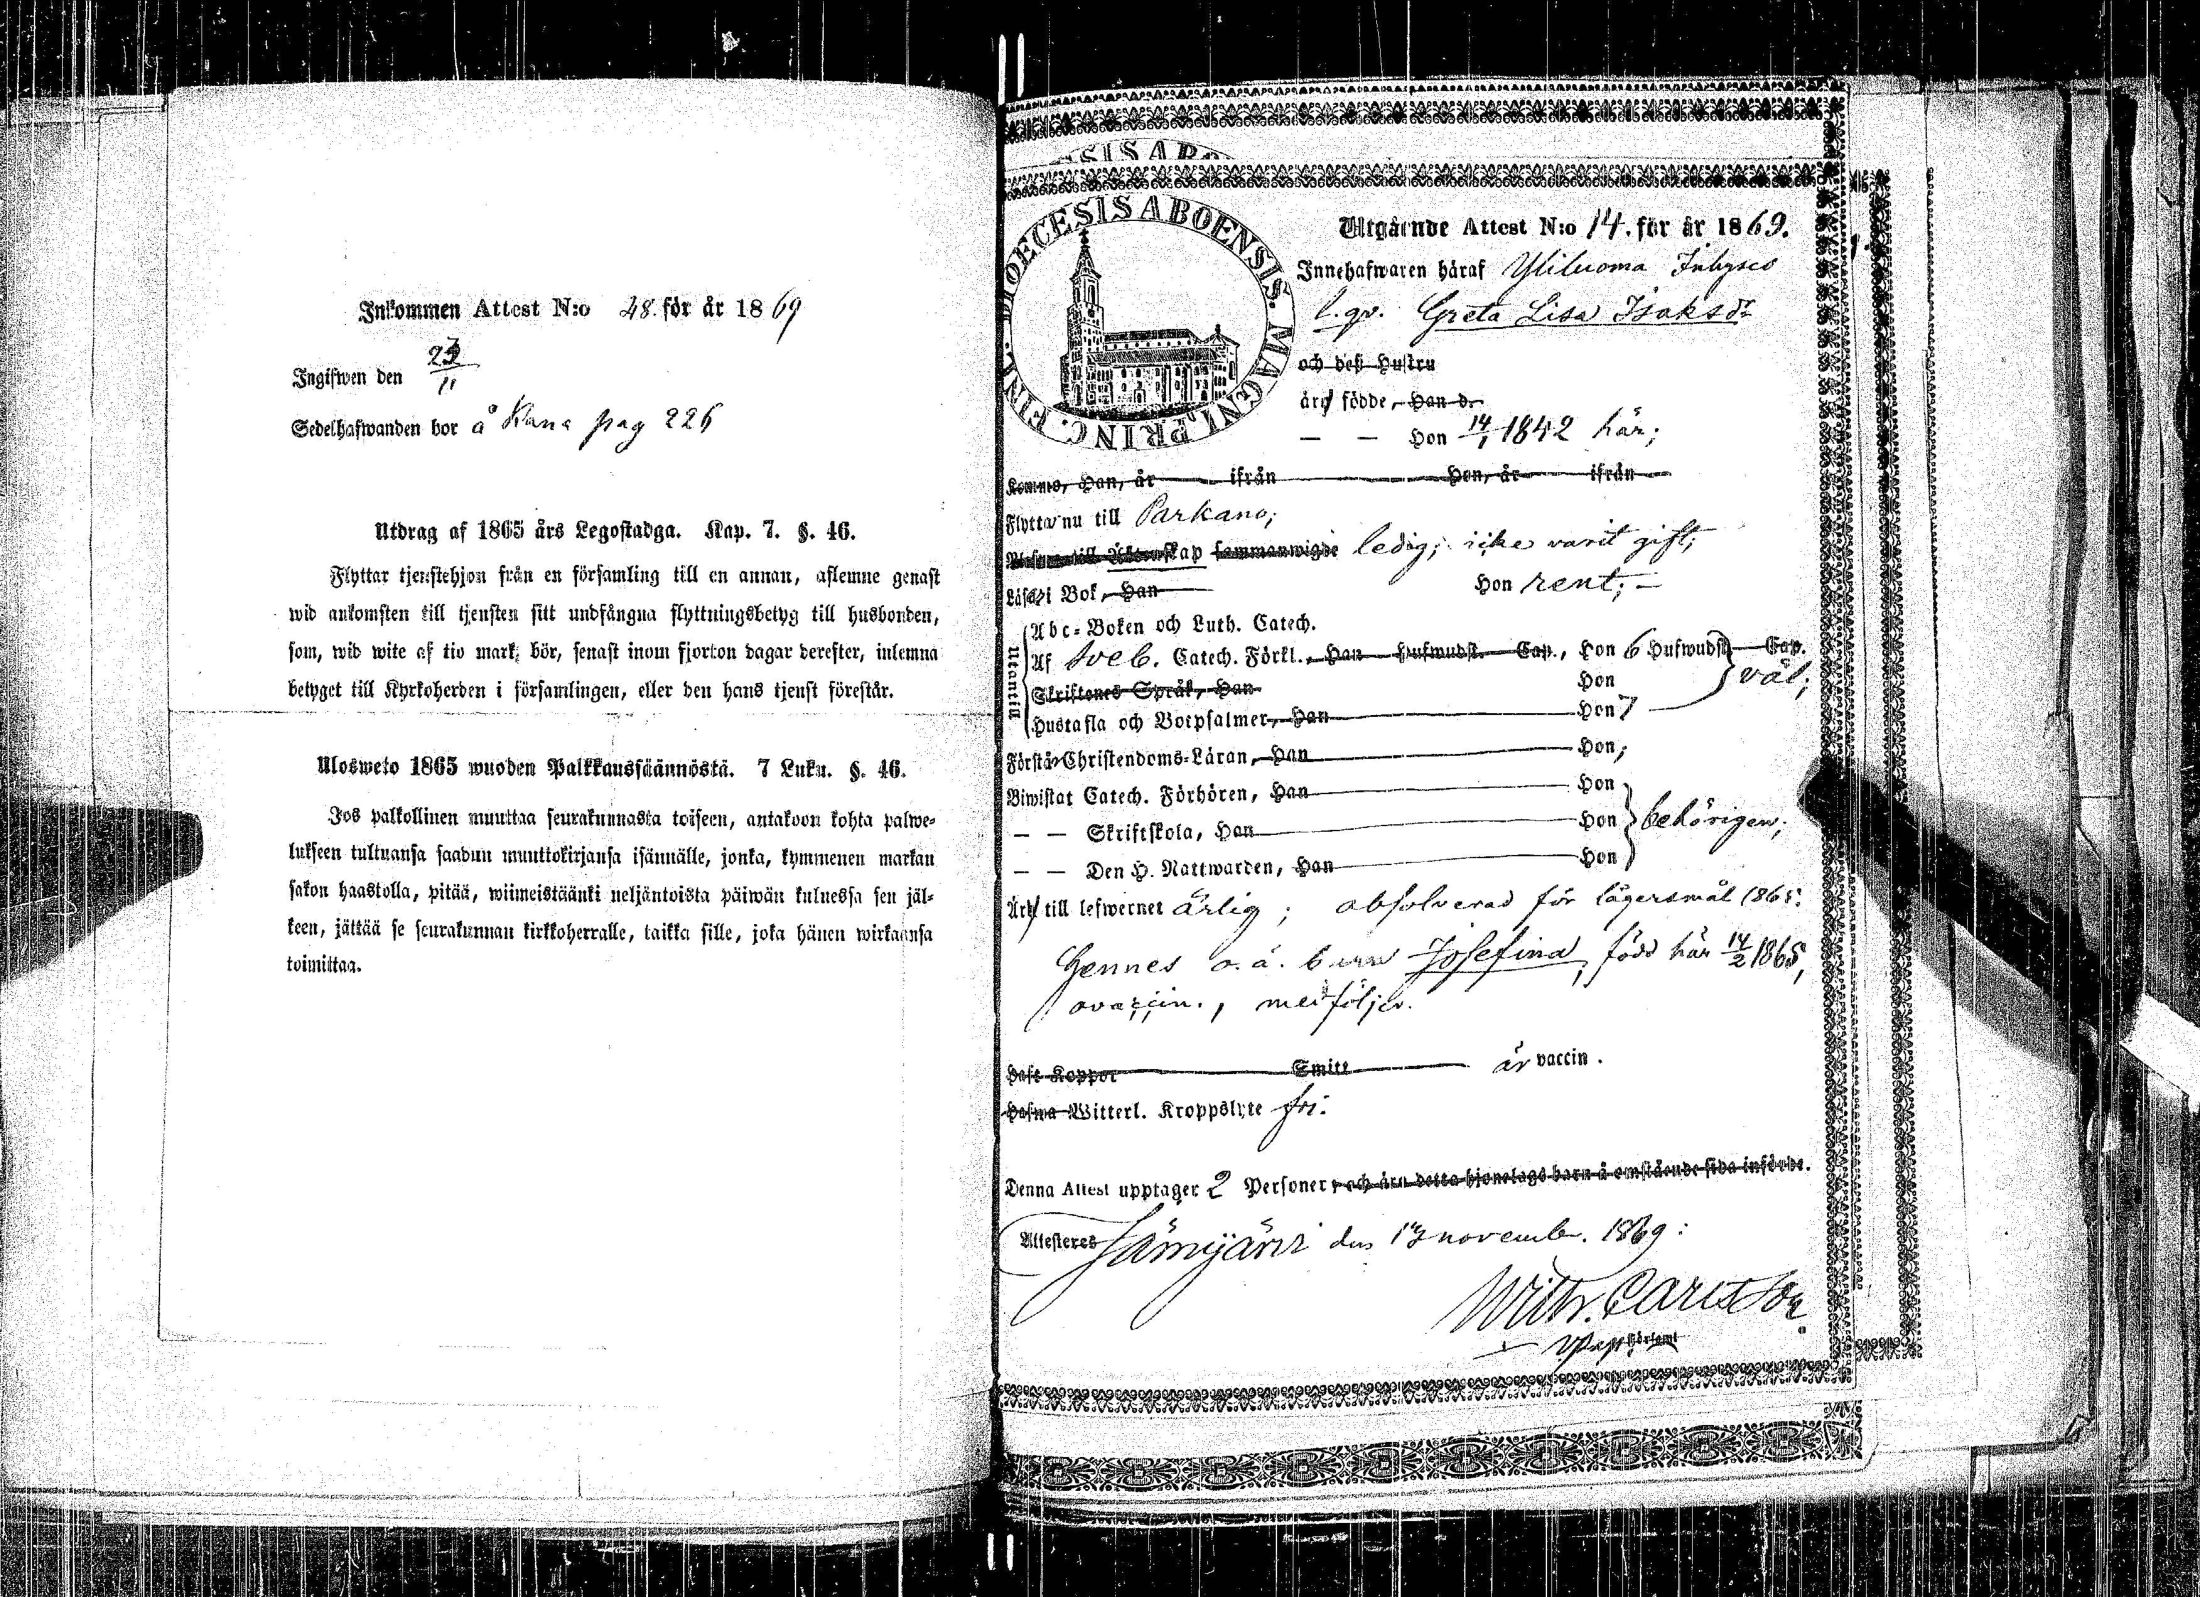 Inkommen Attest N:o 48. för år 1869
Ingifwen den 23/11
Sedelhafwanden bor å Kana pag 226
Utdrag af 1865 års Legostadga. Kap. 7. §. 46.
Flyttar tjenstehjon från en församling till en annan, aflemne genast
wid ankomsten till tjensten sitt undfångna flyttningsbetyg till husbonden,
som, wid wite af tio mark, bör, senast inom fjorton dagar derefter, inlemna
betyget till Kyrkoherden i församlingen, eller den hans tjenst förestår.
Ulosweto 1865 wuoden Palkkaussäännöstä. 7 Luku. §. 46.
Jos palkollinen muuttaa seurakunnasta toiseen, antakoon kohta palwe-
lukseen tultuansa saadun muuttokirjansa isännälle, jonka, kymmenen markan
sakon haastolla, pitää, wiimeistäänki neljäntoista päiwän kuluessa sen jäl-
keen, jättää se seurakunnan kirkkoherralle, taikka sille, joka hänen wirkaansa
toimittaa.
DIOECESIS ABOENSIS. MAGNI. PRINC. FINL.
Utgående Attest N:o 14. för år 1869.
Innehafwaren häraf Yliluoma Inhyses
l. qv. Greta Lisa Isaksdr
och deß Hustru
äro födde, Han d.
— — Hon 14/1 1842 här;
Komne, Han, år ifrån Hon, år ifrån
Flytta nu till Parkano;
Äktenskap sammanwigde ledig; icke varit gift;
Läsa i Bok, Han Hon rent; —
Utantill
Abc-Boken och Luth. Catech.
Af Sveb. Catech. Förkl., Han Hufwudst. Cap., Hon 6 Hufwudst. Cap.
väl;
Skriftenes Språk, Han Hon
Hustafla och Botpsalmer, Han Hon 7
Förstå Christendoms-Läran, Han Hon,
Biwistat Catech. Förhören, Han Hon
— — Skriftskola, Han Hon behörigen;
— — Den H. Nattwarden, Han Hon
Äro till lefwernet ärlig; absolverad för lägersmål 1865.
Hennes o. ä. barn Josefina, född här 14/2 1865,
ovaccin., medföljer.
Haft Koppor Smitt är vaccin.
Hafwa Witterl. Kroppslyte fri.
Denna Attest upptager 2 Personer, och äro detta hjonelags barn å omstående sida införde.
Attesteres Jämijärvi den 13 november. 1869:
Wilh. Carlsson